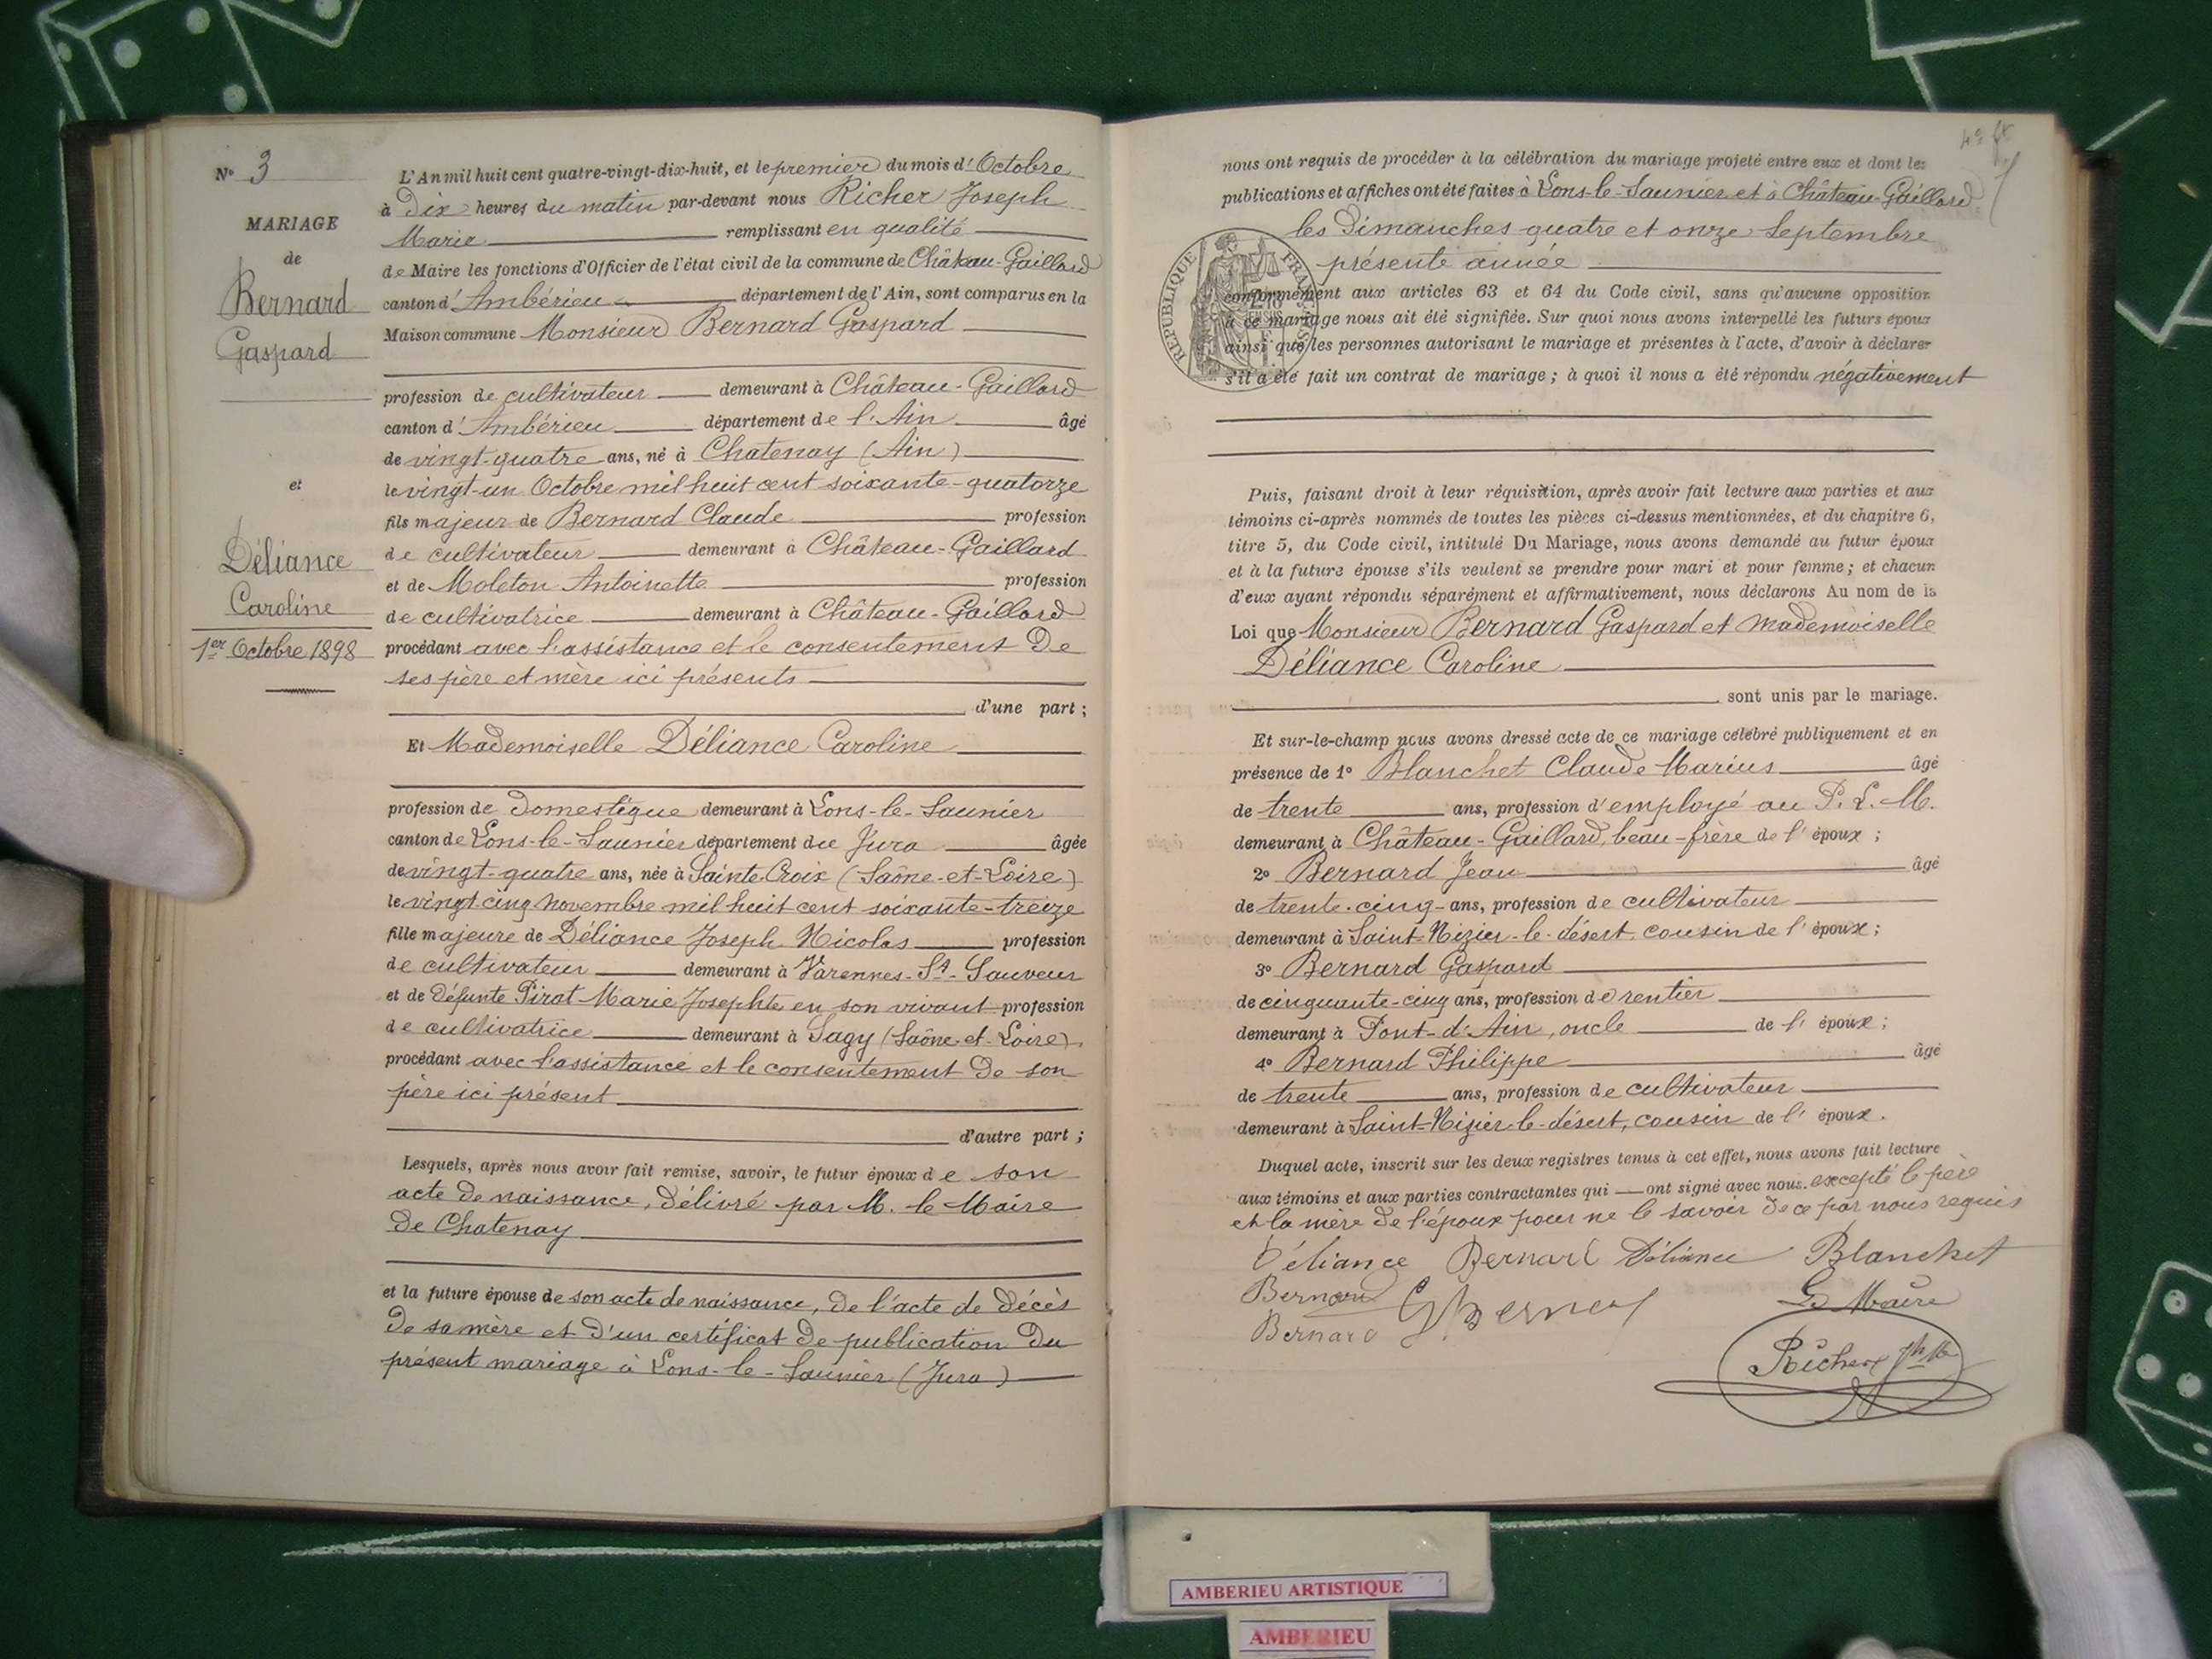 N° 3
MARIAGE
de
Bernard
Gaspard
et
Déliance
Caroline
1er Octobre 1898
L'An mil huit cent quatre-vingt-dix-huit, et le premier du mois d'Octobre
à Dix heures du matin par-devant nous Richer Joseph
Marie remplissant en qualité
de Maire les fonctions d'Officier de l'état civil de la commune de Château-Gaillard
canton d'Ambérieu département de l'Ain, sont comparus en la
Maison commune Monsieur Bernard Gaspard
profession de cultivateur demeurant à Château-Gaillard
canton d'Ambérieu département de l'Ain âgé
de vingt-quatre ans, né à Chatenay (Ain)
le vingt-un Octobre mil huit cent soixante-quatorze
fils majeur de Bernard Claude profession
de cultivateur demeurant à Château-Gaillard
et de Moleton Antoinette profession
de cultivatrice demeurant à Château-Gaillard
procédant avec l'assistance et le consentement De
ses père et mère ici présents
d'une part ;
Et Mademoiselle Déliance Caroline
profession de domestique demeurant à Lons-le-Saunier
canton de Lons-le-Saunier département du Jura âgée
de vingt-quatre ans, née à Sainte Croix (Saône-et-Loire)
le vingt cinq novembre mil huit cent soixante-treize
fille majeure de Déliance Joseph Nicolas profession
de cultivateur demeurant à Varennes-St-Sauveur
et de Défunte Pirat Marie Josephte en son vivant profession
de cultivatrice demeurant à Sagy (Saône-et-Loire)
procédant avec l'assistance et le consentement De son
père ici présent
d'autre part ;
Lesquels, après nous avoir fait remise, savoir, le futur époux de son
acte de naissance, délivré par M. le Maire
De Chatenay
et la future épouse de son acte de naissance, De l'acte de décès
De sa mère et D'un certificat De publication Du
présent mariage à Lons-le-Saunier (Jura)
nous ont requis de procéder à la célébration du mariage projeté entre eux et dont les
publications et affiches ont été faites à Lons-le-Saunier et à Château-Gaillard
les Dimanches quatre et onze Septembre
présente année
conformément aux articles 63 et 64 du Code civil, sans qu'aucune opposition
à ce mariage nous ait été signifiée. Sur quoi nous avons interpellé les futurs époux
ainsi que les personnes autorisant le mariage et présentes à l'acte, d'avoir à déclarer
s'il a été fait un contrat de mariage ; à quoi il nous a été répondu négativement
RÉPUBLIQUE FRANÇAISE
Puis, faisant droit à leur réquisition, après avoir fait lecture aux parties et aux
témoins ci-après nommés de toutes les pièces ci-dessus mentionnées, et du chapitre 6,
titre 5, du Code civil, intitulé Du Mariage, nous avons demandé au futur époux
et à la future épouse s'ils veulent se prendre pour mari et pour femme ; et chacun
d'eux ayant répondu séparément et affirmativement, nous déclarons Au nom de la
Loi que Monsieur Bernard Gaspard et mademoiselle
Déliance Caroline
sont unis par le mariage.
Et sur-le-champ nous avons dressé acte de ce mariage célébré publiquement et en
présence de 1° Blanchet Claude Marius âgé
de trente ans, profession d'employé au P. L. M.
demeurant à Château-Gaillard, beau-frère de l'époux ;
2° Bernard Jean âgé
de trente-cinq ans, profession de cultivateur
demeurant à Saint-Nizier-le-désert, cousin de l'époux ;
3° Bernard Gaspard
de cinquante-cinq ans, profession de rentier
demeurant à Pont-d'Ain, oncle de l'époux ;
4° Bernard Philippe âgé
de trente ans, profession de cultivateur
demeurant à Saint-Nizier-le-désert, cousin de l'époux.
Duquel acte, inscrit sur les deux registres tenus à cet effet, nous avons fait lecture
aux témoins et aux parties contractantes qui ont signé avec nous. excepté le père
et la mère de l'époux pour ne le savoir de ce par nous requis
Déliance Bernard Déliance Blanchet
Bernard G Bernard Le Maire
Bernard
Richer Jh Me
AMBERIEU ARTISTIQUE
AMBERIEU